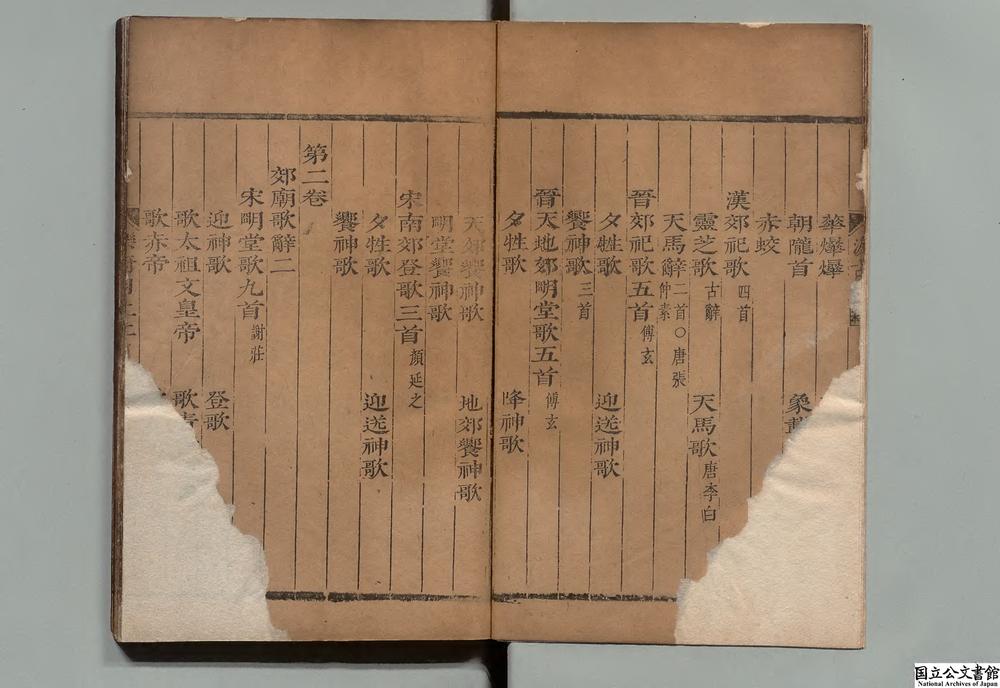 華爗爗
朝隴首 象
赤蛟
漢郊祀歌四首
靈芝歌古辭 天馬歌唐李白
天馬辭二首○唐張仲素
晉郊祀歌五首傅玄
夕牲歌 迎送神歌
饗神歌三首
晉天地郊明堂歌五首傅玄
夕牲歌 降神歌
天郊饗神歌 地郊饗神歌
明堂饗神歌
宋南郊登歌三首顏延之
夕牲歌 迎送神歌
饗神歌
第二卷
郊廟歌辭二
宋明堂歌九首謝莊
迎神歌 登歌
歌太祖文皇帝 歌
歌赤帝
国立公文書館
National Archives of Japan